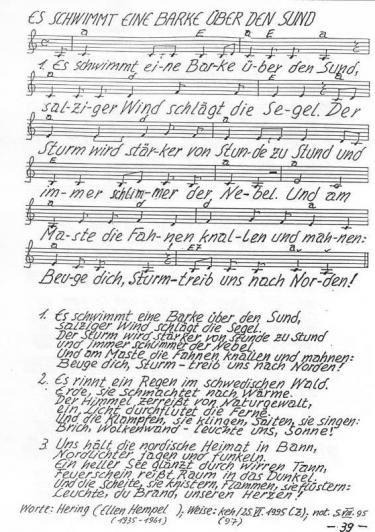 ES SCHWIMMT EINE BARKE ÜBER DEN SUND
a E E a
1. Es schwimmt ei-ne Bar-ke ü-ber den Sund,
a d E a
sal-zi-ger Wind schlägt die Se-gel. Der
a d a
Sturm wird stär-ker von Stun-de zu Stund und
E a
im-mer schlim-mer der Ne-bel. Und am
d a
Ma-ste die Fah-nen knal-len und mah-nen:
a E7 a
Beu-ge dich, Sturm-treib uns nach Nor-den!
1. Es schwimmt eine Barke über den Sund,
Salziger Wind schlägt die Segel.
Der Sturm wird stärker von Stunde zu Stund
Und immer schlimmer der Nebel.
Und am Maste die Fahnen knallen und mahnen:
Beuge dich, Sturm-treib uns nach Norden!
2. Es rinnt ein Regen im schwedischen Wald.
Erde, sie schmachtet nach Wärme.
Der Himmel zerreißt von Naturgewalt,
ein Licht durchflutet die Ferne.
Und die Klampfen, sie klingen, Saiten, sie singen:
Brich, Wolkenwand - Leuchte uns, Sonne!
3 Uns hält die nordische Heimat in Bann,
Nordlichter jagen und funkeln.
Ein heller See glänzt durch wirren Tann,
Feuerschein reißt Raum in das Dunkel.
Und die Scheite, sie knistern, Flammen, sie flüstern:
Leuchte, du Brand, unseren Herzen!
Worte: Hering (Ellen Hempel), Weise: keh/25.VI.1995 (Z), not. 5.VII.95
(1935-1961) (97)
- 39 -